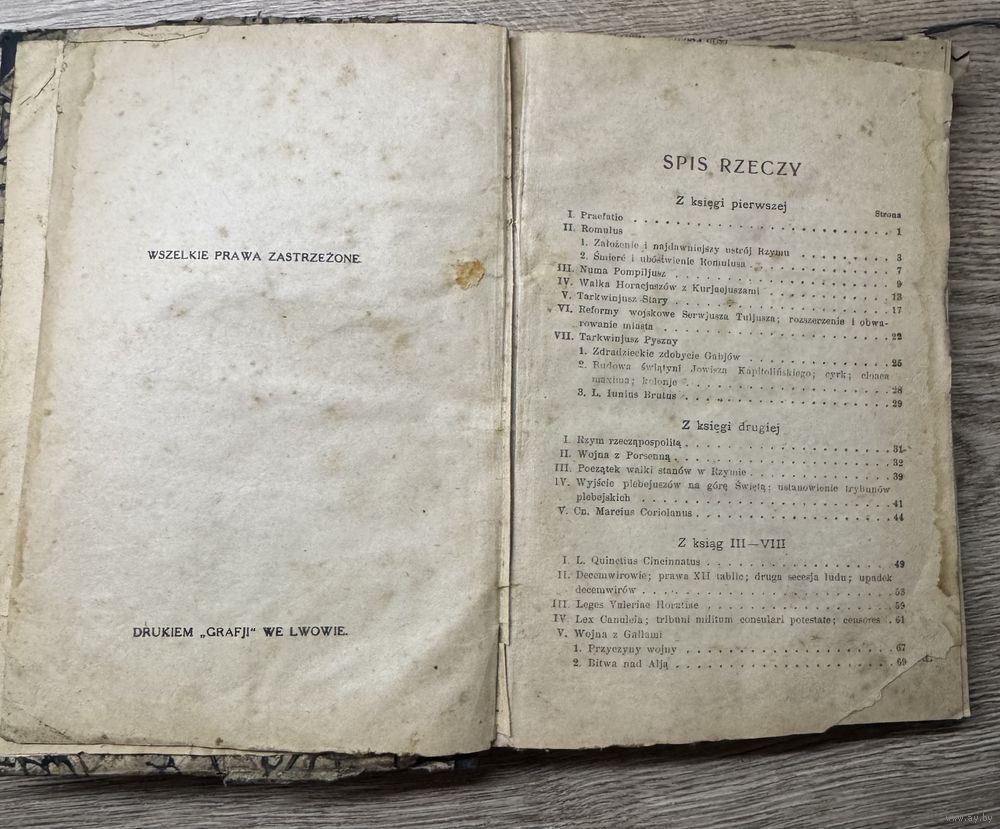 WSZELKIE PRAWA ZASTRZEŻONE.
DRUKIEM „GRAFJI“ WE LWOWIE.
SPIS RZECZY
Z księgi pierwszej
Strona
I. Praefatio . . . . . . . . . . . . . . . . 1
II. Romulus
1. Założenie i najdawniejszy ustrój Rzymu . . . . . . . 3
2. Śmierć i ubóstwienie Romulusa . . . . . . . . . . 7
III. Numa Pompiljusz . . . . . . . . . . . . . . 9
IV. Walka Horacjuszów z Kurjacjuszami . . . . . . . . 13
V. Tarkwinjusz Stary . . . . . . . . . . . . . . 17
VI. Reformy wojskowe Serwjusza Tuljusza; rozszerzenie i obwa-
rowanie miasta . . . . . . . . . . . . . . 22
VII. Tarkwinjusz Pyszny
1. Zdradzieckie zdobycie Gabjów . . . . . . . . . . 25
2. Budowa świątyni Jowisza Kapitolińskiego; cyrk; cloaca
maxima; kolonje . . . . . . . . . . . . . . 28
3. L. Iunius Brutus . . . . . . . . . . . . . . 29
Z księgi drugiej
I. Rzym rzecząpospolitą . . . . . . . . . . . . . 31
II. Wojna z Porsenną . . . . . . . . . . . . . . 32
III. Początek walki stanów w Rzymie . . . . . . . . . 39
IV. Wyjście plebejuszów na górę Świętą; ustanowienie trybunów
plebejskich . . . . . . . . . . . . . . . . 41
V. Cn. Marcius Coriolanus . . . . . . . . . . . . 44
Z ksiąg III—VIII
I. L. Quinctius Cincinnatus . . . . . . . . . . . . 49
II. Decemwirowie; prawa XII tablic; druga secesja ludu; upadek
decemwirów . . . . . . . . . . . . . . . . 53
III. Leges Valeriae Horatiae . . . . . . . . . . . . 59
IV. Lex Canuleia; tribuni militum consulari potestate; censores . 61
V. Wojna z Gallami
1. Przyczyny wojny . . . . . . . . . . . . . . 67
2. Bitwa nad Alją . . . . . . . . . . . . . . . 69
www.ay.by